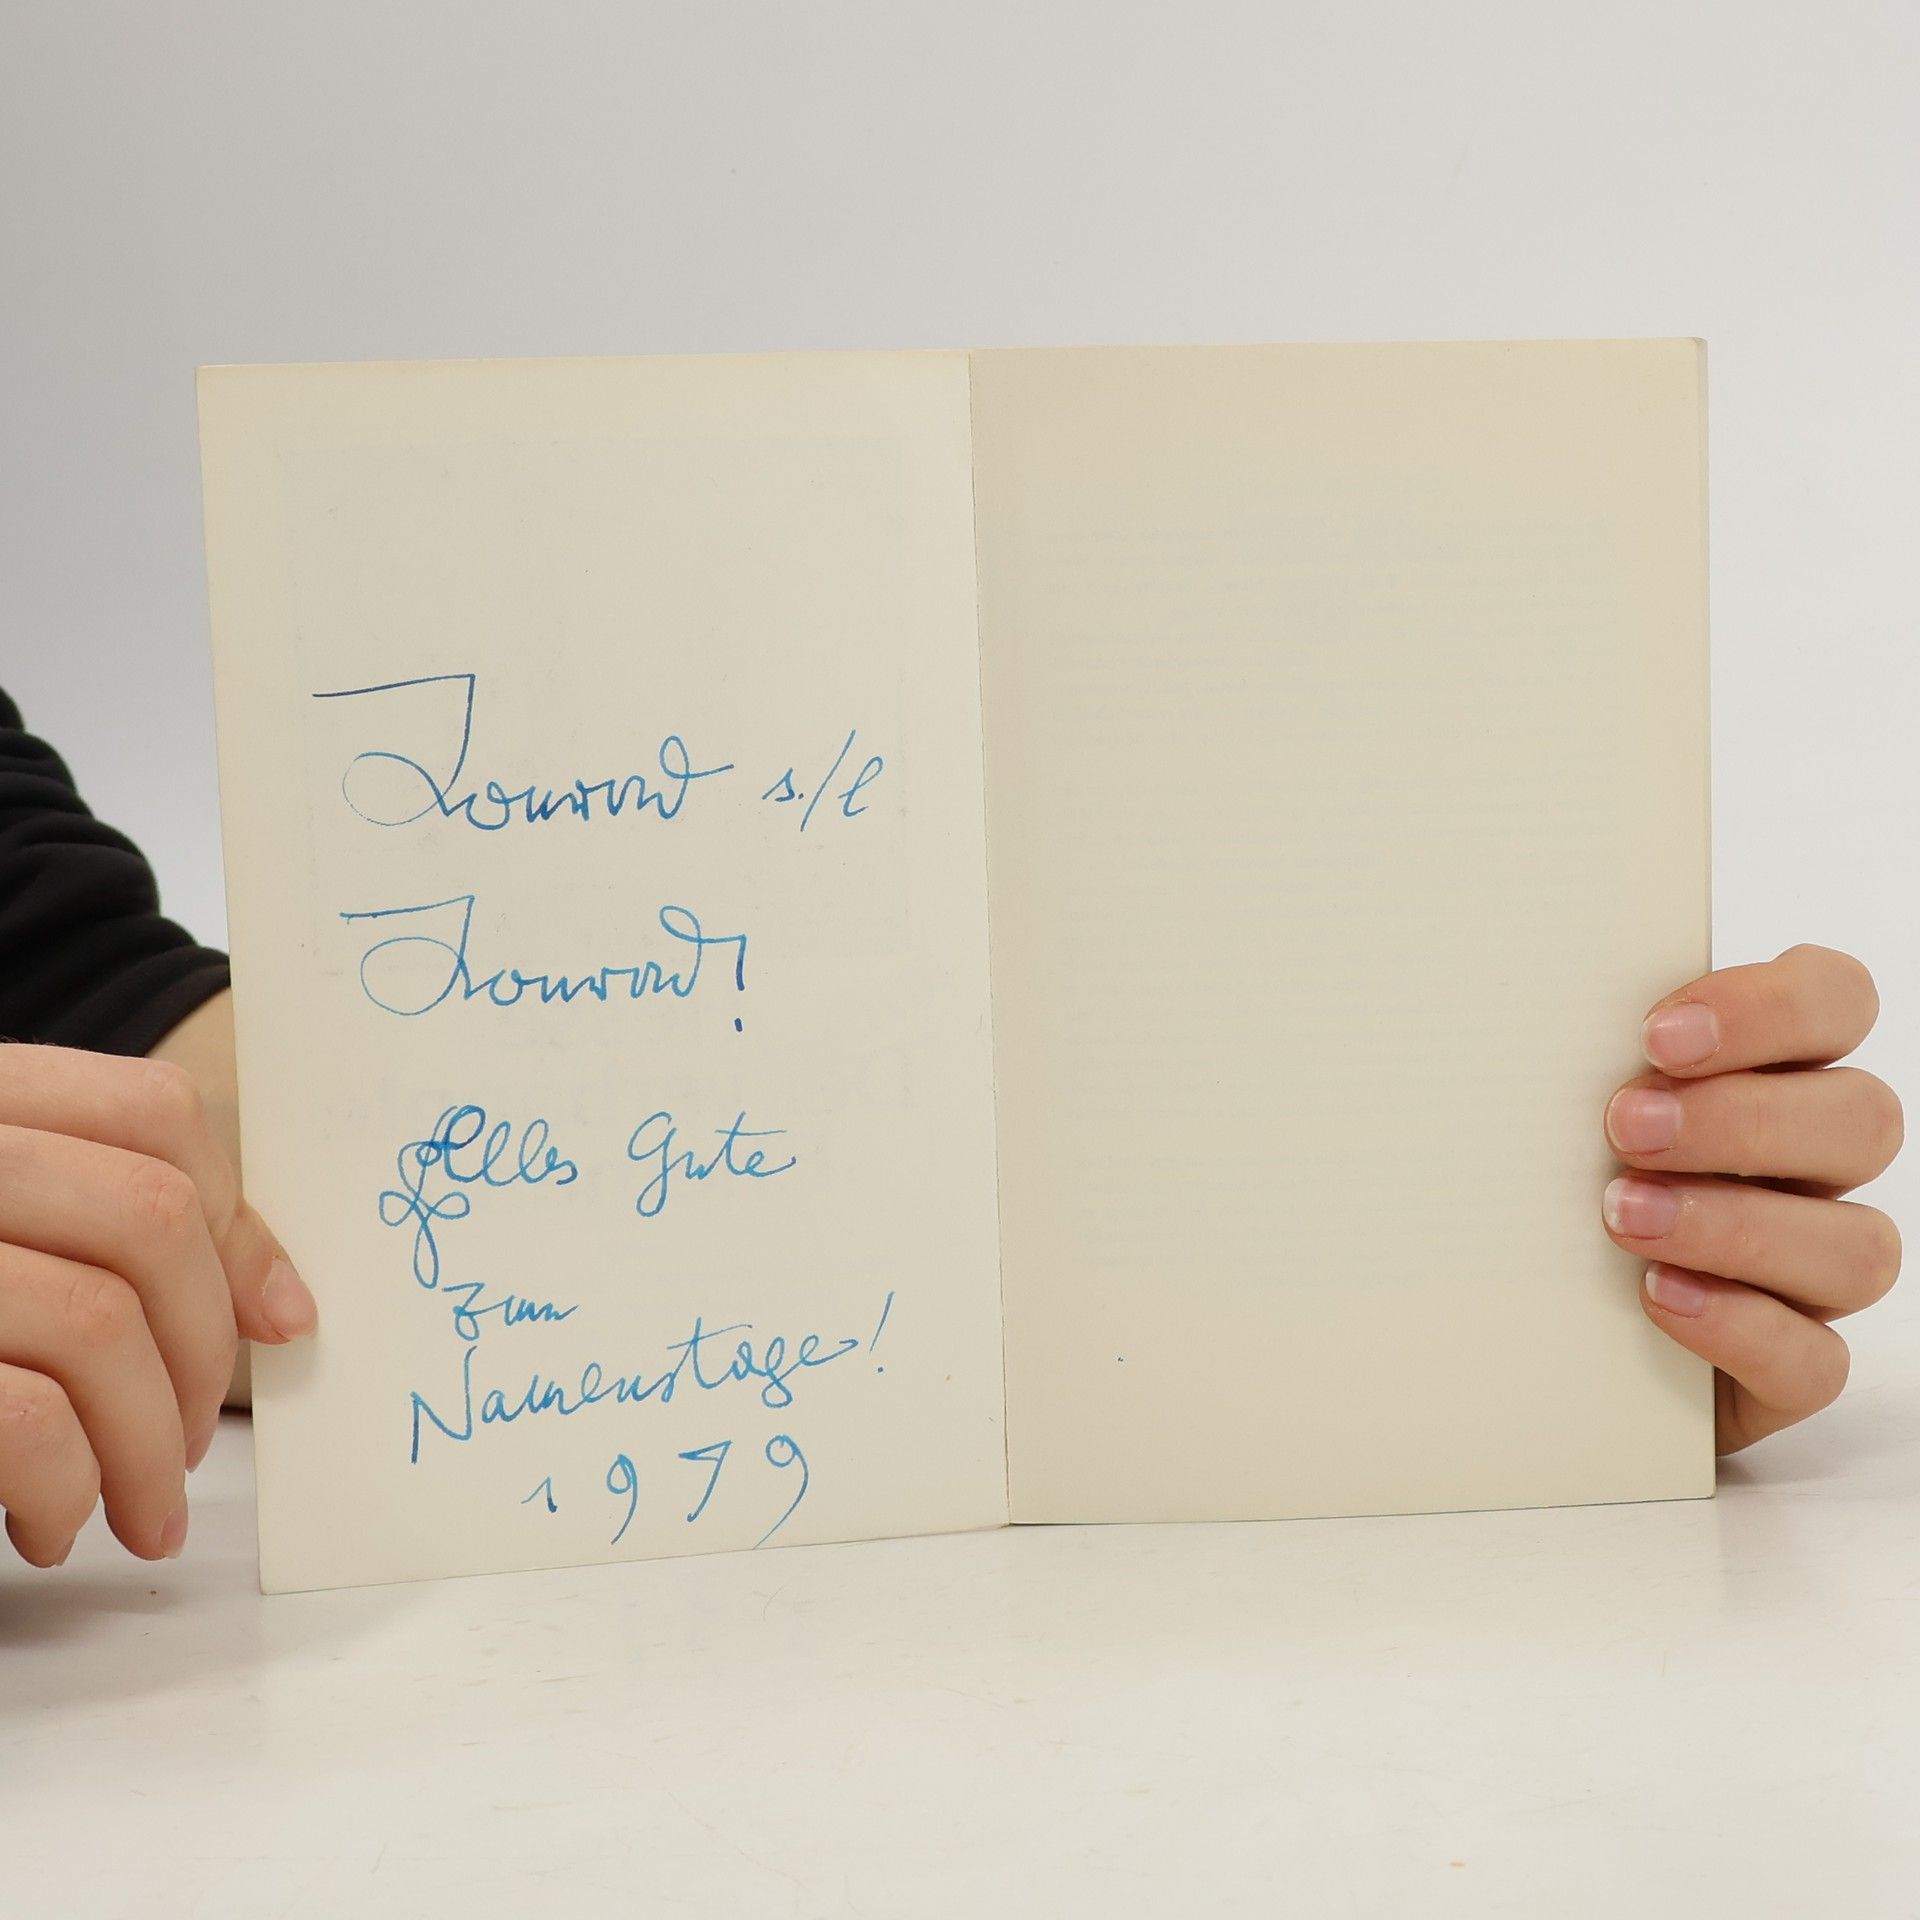 Konrad s./l
Konrad!
Alles Gute
zum
Namenstage!
1979